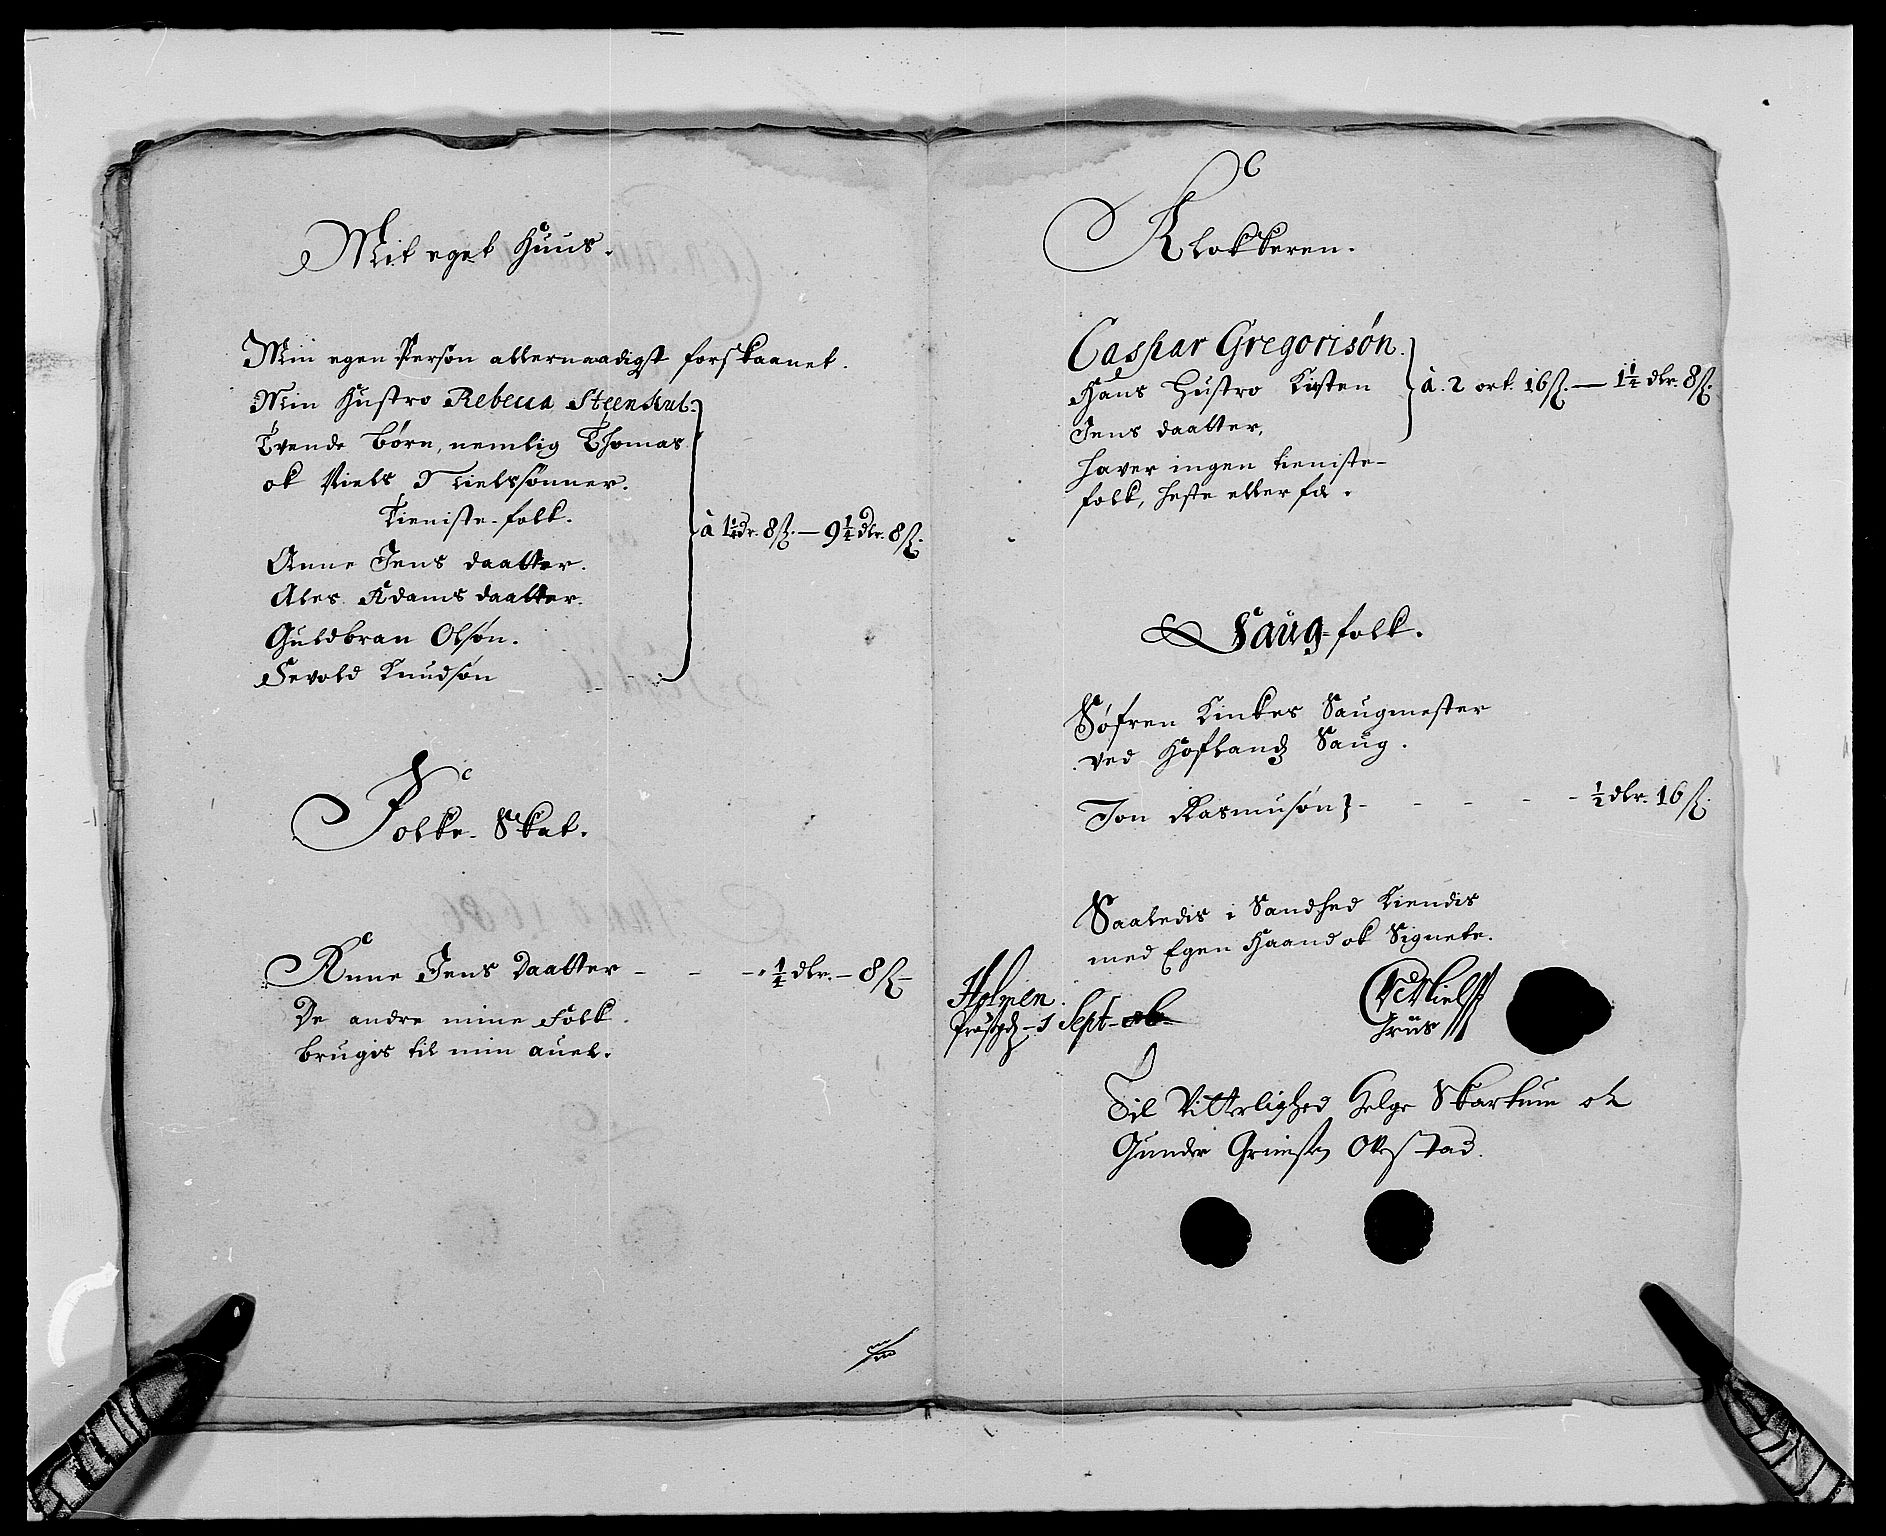 Mit eget Huus.
Min egen Person allernaadigst forskaanet.
Min Hustro Rebecca Steenkul.
Tvende børn, nemlig Thomas
ok Niels Nielssønner.
Tieniste-folk.
Anne Jens daatter.
Ales Adams daatter.
Guldbran Olsøn.
Sevold Knudsøn
à 1¼ dr. 8ß. — 9¼ dlr. 8ß.
Folke-Skat.
Anne Jens Daatter - - - ¼ dlr. - 8ß -
De andre mine Folk
brugis til min auel.
Klokkeren.
Caspar Gregorisøn.
Hans Hustro Kisten
Jens daatter,
à. 2 ort. 16ß. — 1¼ dlr. 8ß.
haver ingen tieniste-
folk, heste eller fæ.
Saug-folk.
Søfren Kinkes Saugmester
ved Hofland Saug.
Jon Rasmusøn} - - - - - ½ dlr. 16ß.
Saaledis i Sandhed Kiendis
med Egen Haand ok Signete.
Holmen
- 1 Sept - 86.
Niels
Til Vitterlighed Helge Skarkum ok
Gunder Grimsen